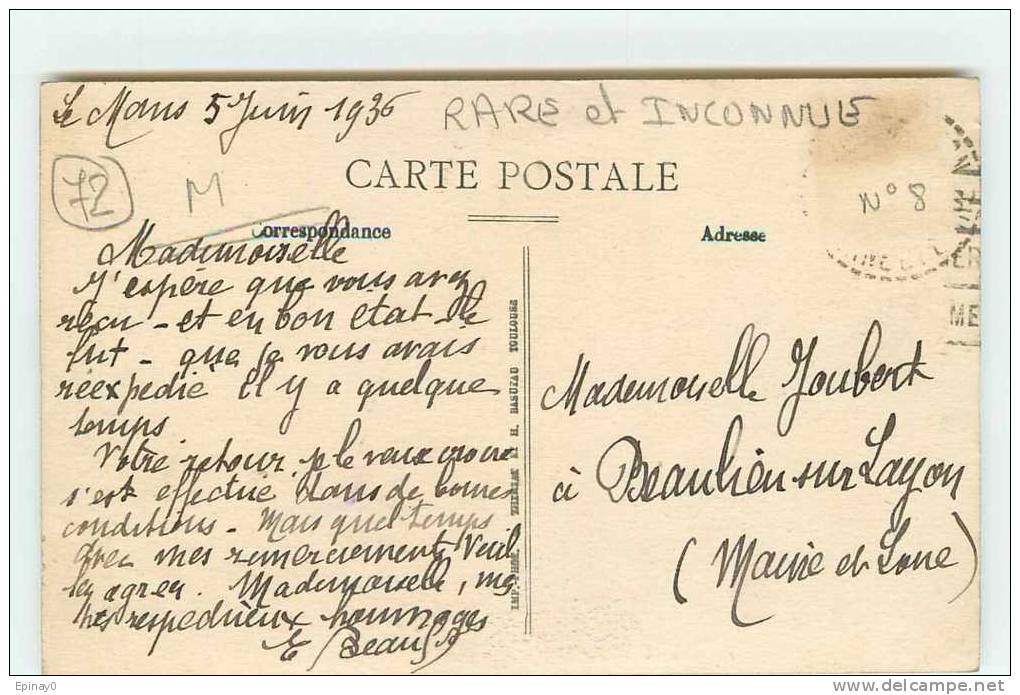 Le Mans 5 Juin 1936
RARE et INCONNUE
72
M
CARTE POSTALE
N° 8
Correspondance
Adresse
Mademoiselle
J'espère que vous avez
reçu - et en bon état - le
fût - que je vous avais
réexpédié il y a quelque
temps
Votre retour, je le veux croire
s'est effectué dans de bonnes
conditions - Mais quel temps
Avec mes remerciements Veuil
lez agréer. Mademoiselle, mes
respectueux hommages
E
IMP. PHOT. ET H. BASUYAU TOULOUSE
Mademoiselle Joubert
à Beaulieu sur Layon
(Maine et Loire)
ME
Epinay0
www.delcampe.net